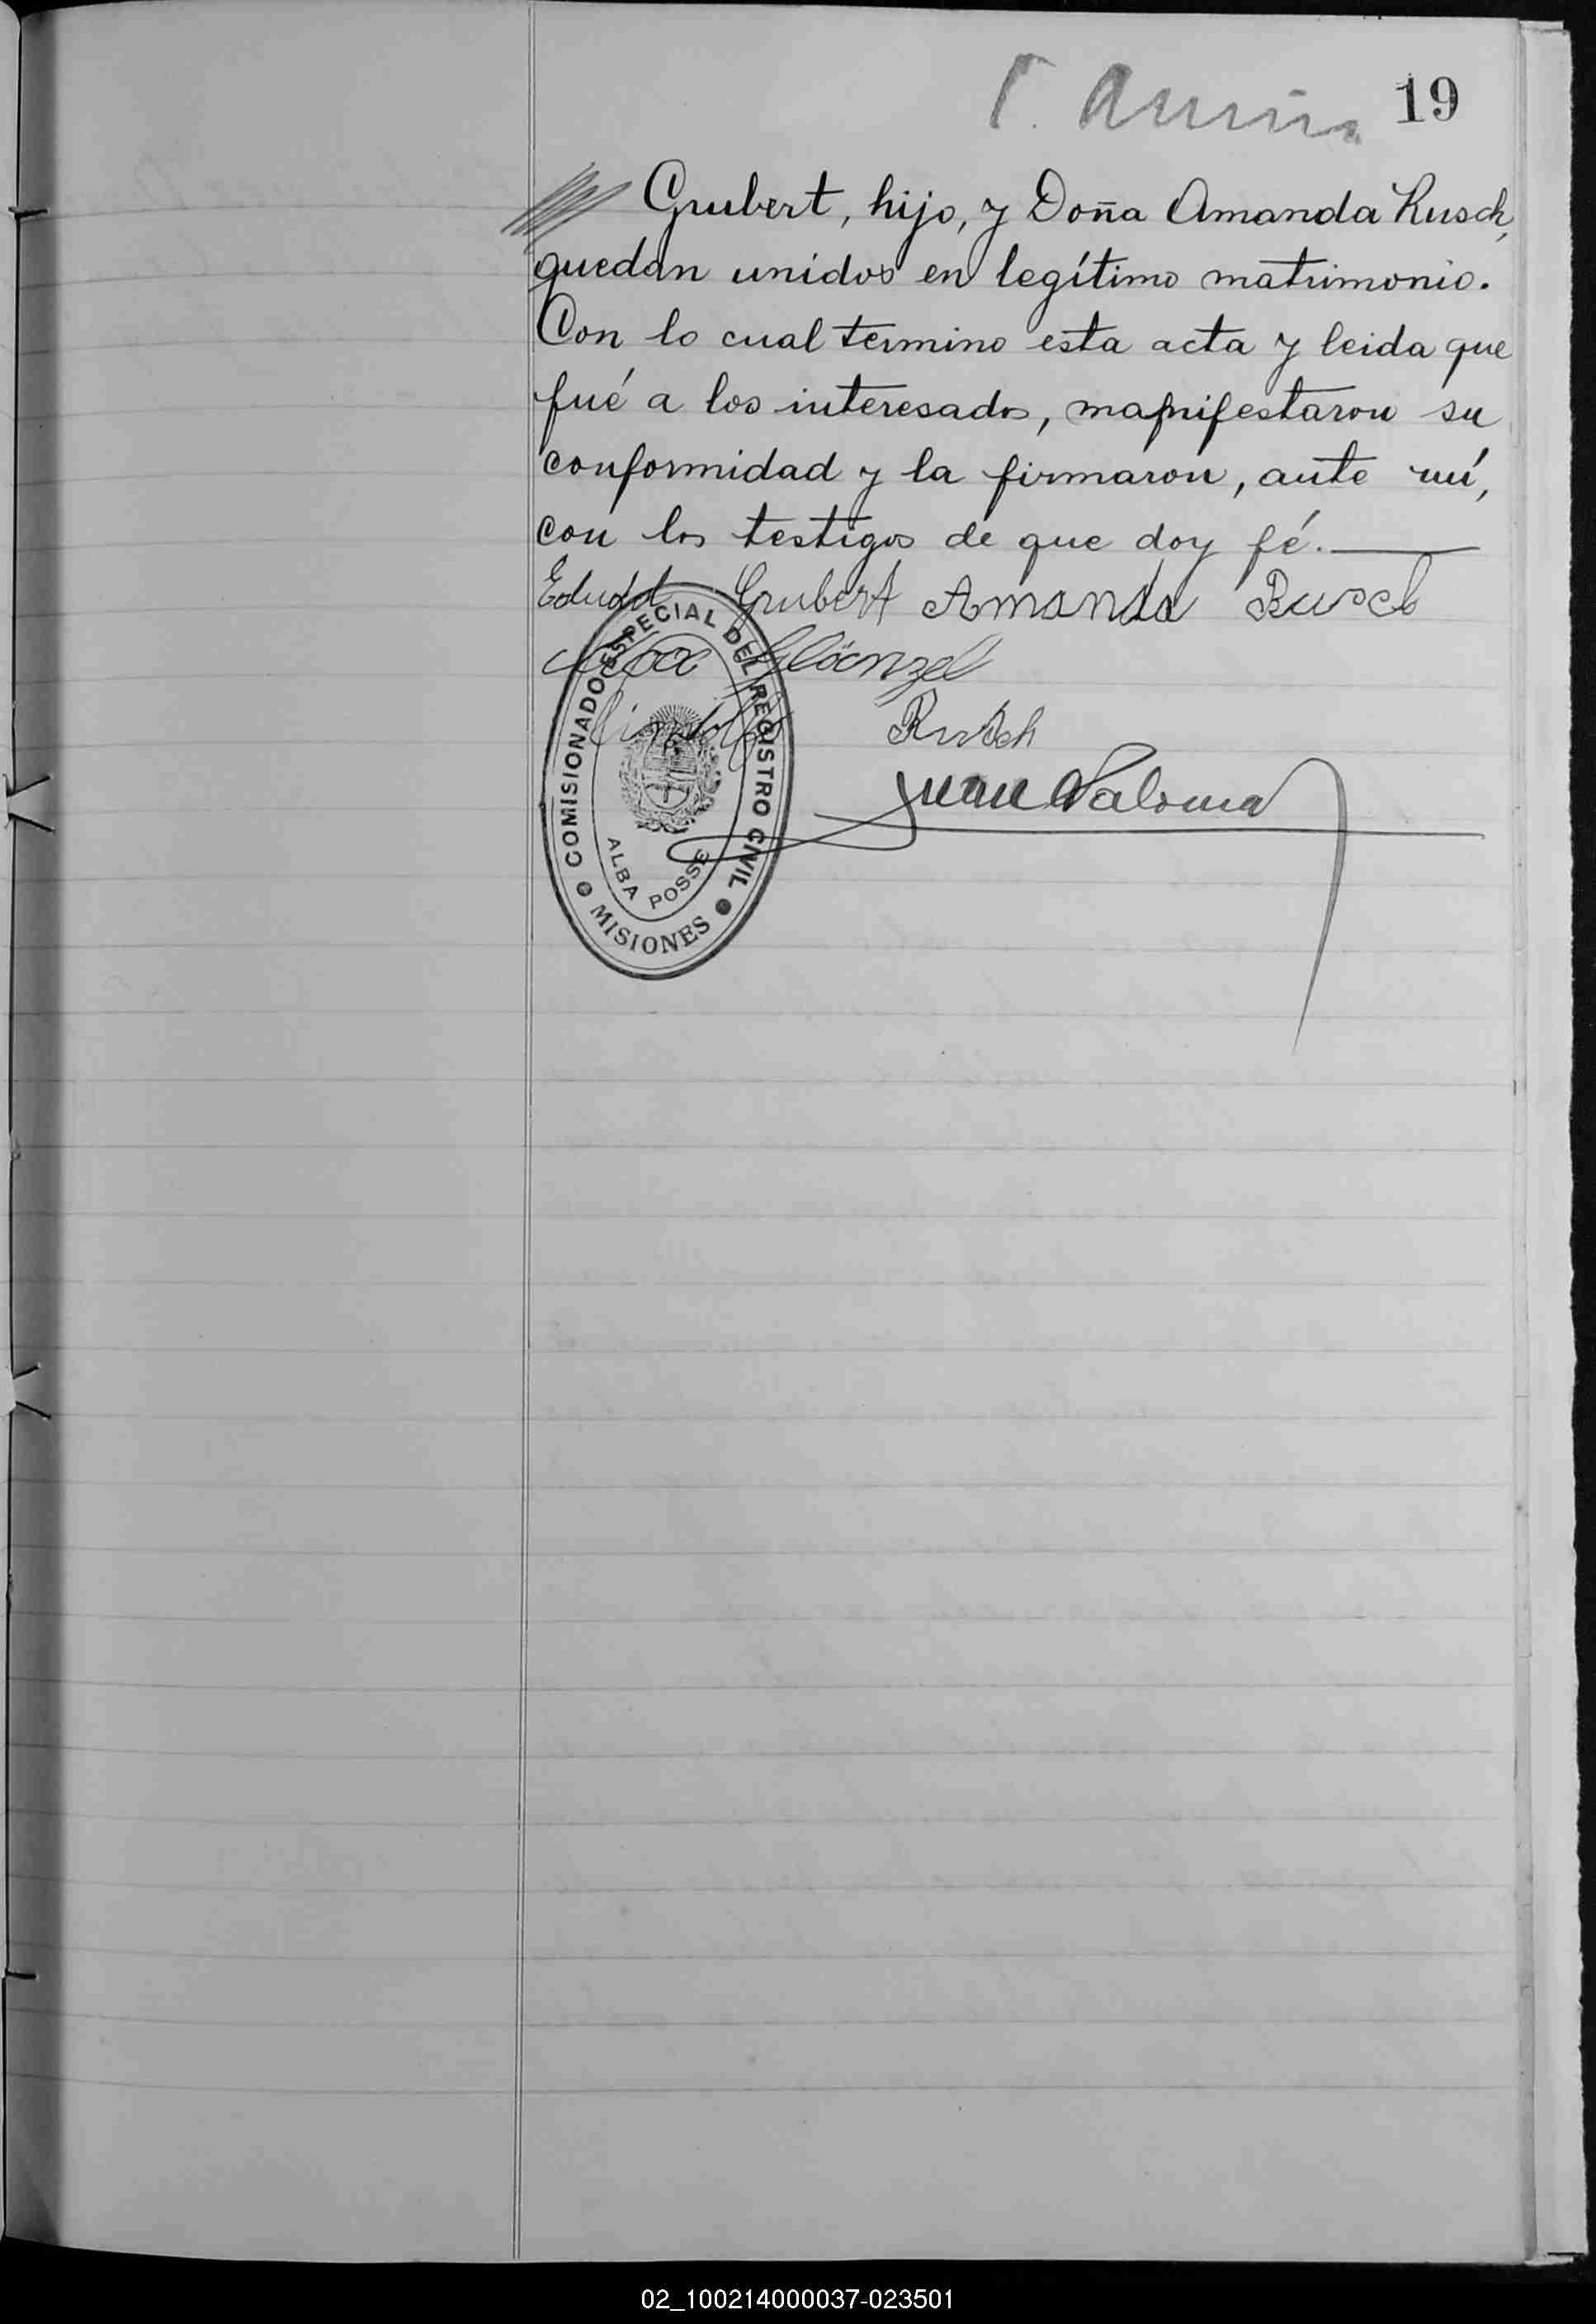 19
Grubert, hijo, y Doña Amanda Rusch,
quedan unidos en legítimo matrimonio.
Con lo cual termino esta acta y leida que
fué a los interesados, manifestaron su
conformidad y la firmaron, ante mí,
con los testigos de que doy fé.
Grubert Amanda Rusch
Rusch
Juan Paloma
COMISIONADO ESPECIAL DEL REGISTRO CIVIL
ALBA POSSE
MISIONES
02_100214000037-023501